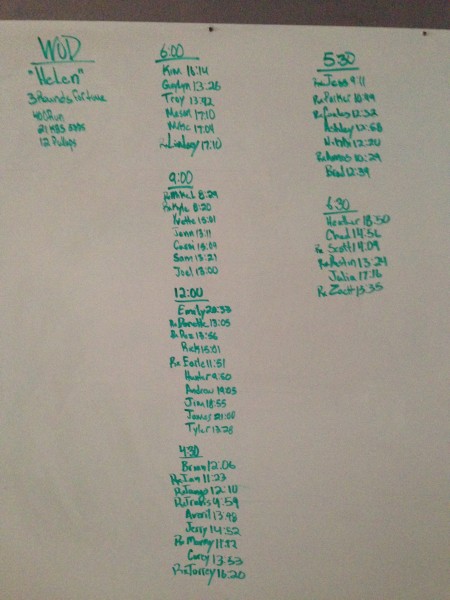 WOD
"Helen"
3 Rounds for time
400 Run
21 KBS
12 Pullups
6:00
Kim 16:14
13:26
Troy 13:42
Mason 17:10
17:09
Rx Lindsey 17:10
9:00
8:29
Rx Kyle 8:20
Yvette 15:01
Jenn 13:11
Cassi 15:09
Sam 13:21
Joel 13:00
12:00
Emily 20:33
Rx Danielle 13:05
Rx 13:56
Rick 15:01
Rx Earle 11:51
Hunter 9:50
Andrew 19:05
Jim 18:55
James 21:00
Tyler 13:28
4:30
Brian 12:06
Rx Ian 11:23
12:10
Rx Travis 9:59
Averil 13:48
Jerry 14:52
Rx
Corey 13:53
Rx Torrey 16:20
5:30
Rx Jess 9:11
Rx Parker 10:49
Rx 12:32
Ashley 12:58
Nikki 12:20
10:29
12:39
6:30
Heather 18:50
Chad 14:56
Rx Scott 14:09
Rx Austin 13:24
Julia 17:16
Rx Zach 13:35